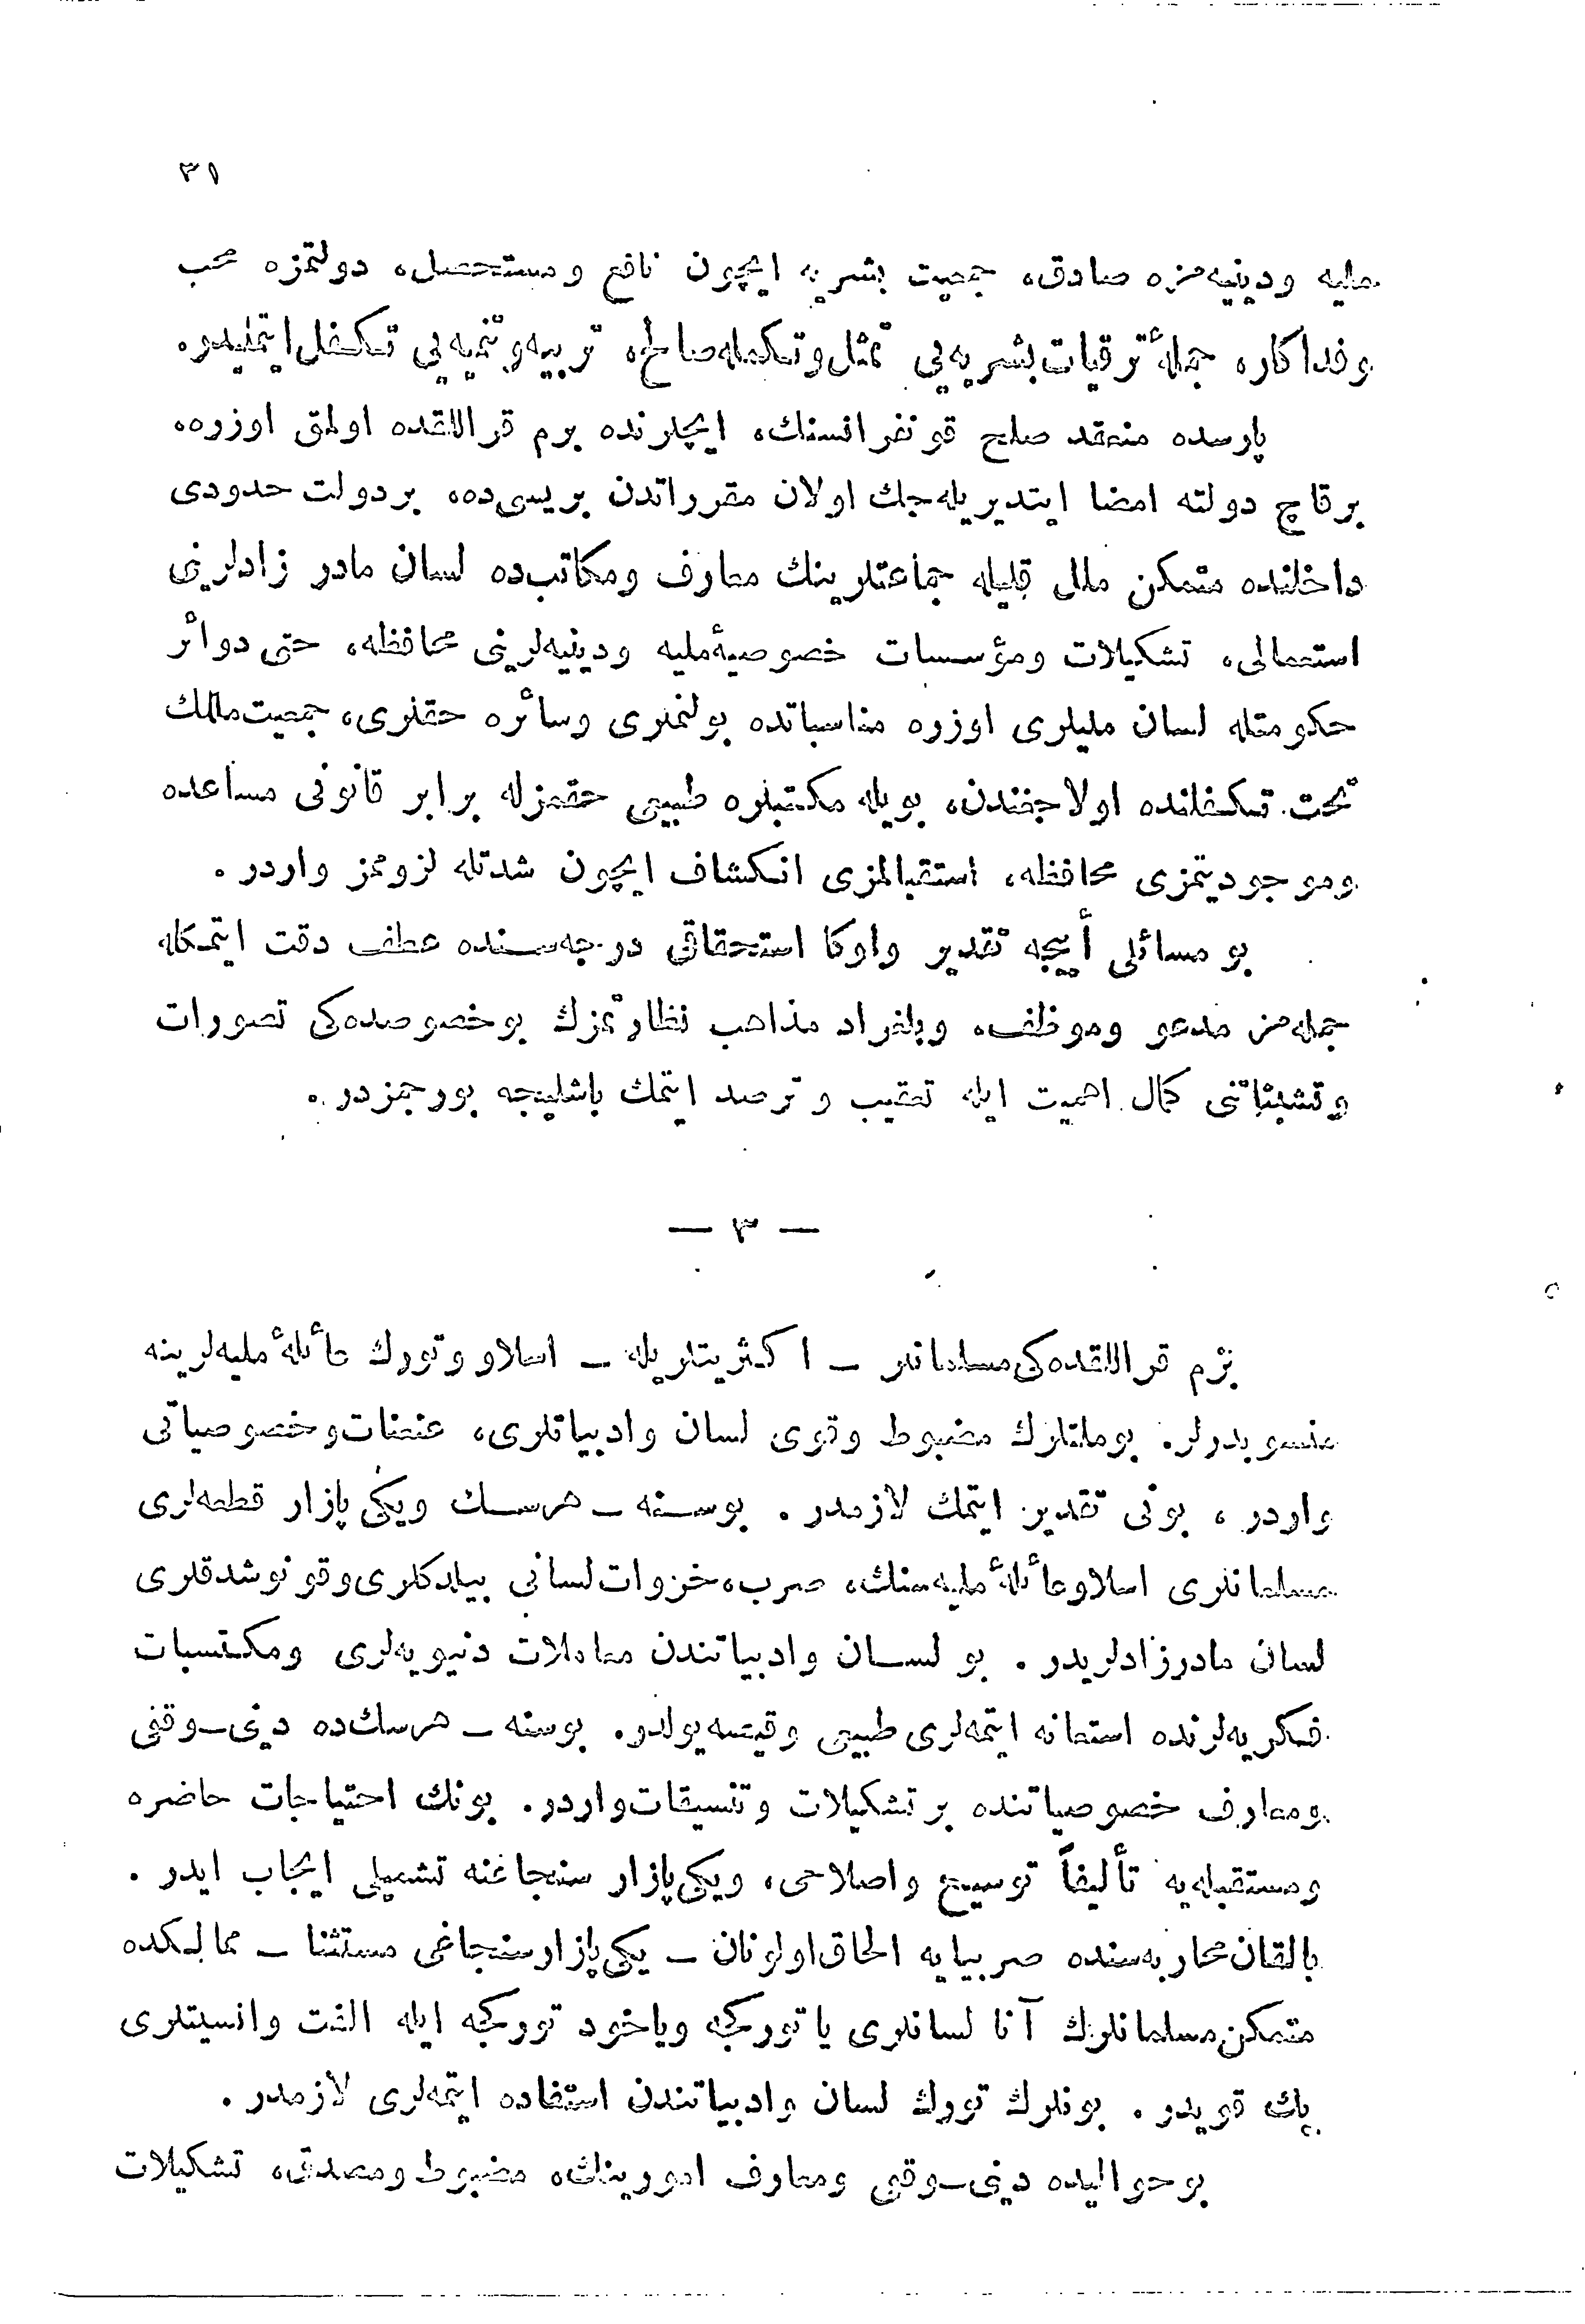 ٣١
مليه ودينيه‌مزه صادق، جمعيت بشريه ايچون نافع ومستحصل، دولتمزه محب
وفداكار، جملهٔ ترقيات بشريه‌يى تمثل وتكمله صالح، تربيه وتنميه‌يى تكفل ايتمليدر.
پارسده منعقد صلح قونفرانسنك، ايچلرنده بزم قراللقده اولمق اوزره،
برقاچ دولته امضا ايتديريله‌جك اولان مقرراتدن بريسى‌ده، بر دولت حدودى
داخلنده متمكن ملل قليله جماعتلرينك معارف ومكاتب‌ده لسان مادر زادلرينى
استعمالى، تشكيلات ومؤسسات خصوصيهٔ مليه ودينيه‌لرينى محافظه، حتى دوائر
حكومتله لسان مليلرى اوزره مناسباتده بولنملرى وسائره حقلرى، جمعيت ملل‌ك
تحت تكفلنده اولاجغندن، بويله مكتبلره طبيعى حقمزله برابر قانونى مساعده
وموجوديتمزى محافظه، استقبالمزى انكشاف ايچون شدتله لزوممز واردر.
بو مسائلى أييجه تقدير واوكا استحقاقى درجه‌سنده عطف دقت ايتمكله
جمله‌مز مدعو وموظف، وبلغراد مذاهب نظارتمزك بوخصوصده‌كى تصورات
وتشبثاتنى كمال اهميت ايله تعقيب و ترصد ايتمك باشليجه بورجمزدر.
— ٣ —
بزم قراللقده‌كى مسلمانلر — اكثريتلريله — اسلاو وتورك عائلهٔ مليه‌لرينه
منسوبدرلر. بوملتلرك مضبوط وقوى لسان وادبياتلرى، عنعنات وخصوصياتى
واردر، بونى تقدير ايتمك لازمدر. بوسنه — هرسك ويكى پازار قطعه‌لرى
مسلمانلرى اسلاو عائلهٔ مليه‌سنك، صرب، خروات لسانى بيلدكلرى وقونوشدقلرى
لسان مادرزادلريدر. بو لسان وادبياتندن معاملات دنيويه‌لرى ومكتسبات
فكريه‌لرنده استعانه ايتمه‌لرى طبيعى وقيصه يولدر. بوسنه — هرسك‌ده دينى—وقفى
ومعارف خصوصياتنده بر تشكيلات وتنسيقات واردر. بونك احتياجات حاضره
ومستقبله‌يه تأليفاً توسيع واصلاحى، ويكى‌پازار سنجاغنه تشميلى ايجاب ايدر.
بالقان محاربه‌سنده صربيايه الحاق اولونان — يكى‌پازار سنجاغى مستثنا — ممالكده
متمكن مسلمانلرك آنا لسانلرى يا توركجه وياخود توركجه ايله الفت وانسيتلرى
پك قويدر. بونلرك تورك لسان وادبياتندن استفاده ايتمه‌لرى لازمدر.
بوحواليده دينى—وقفى ومعارف امورينك، مضبوط ومصدق، تشكيلات